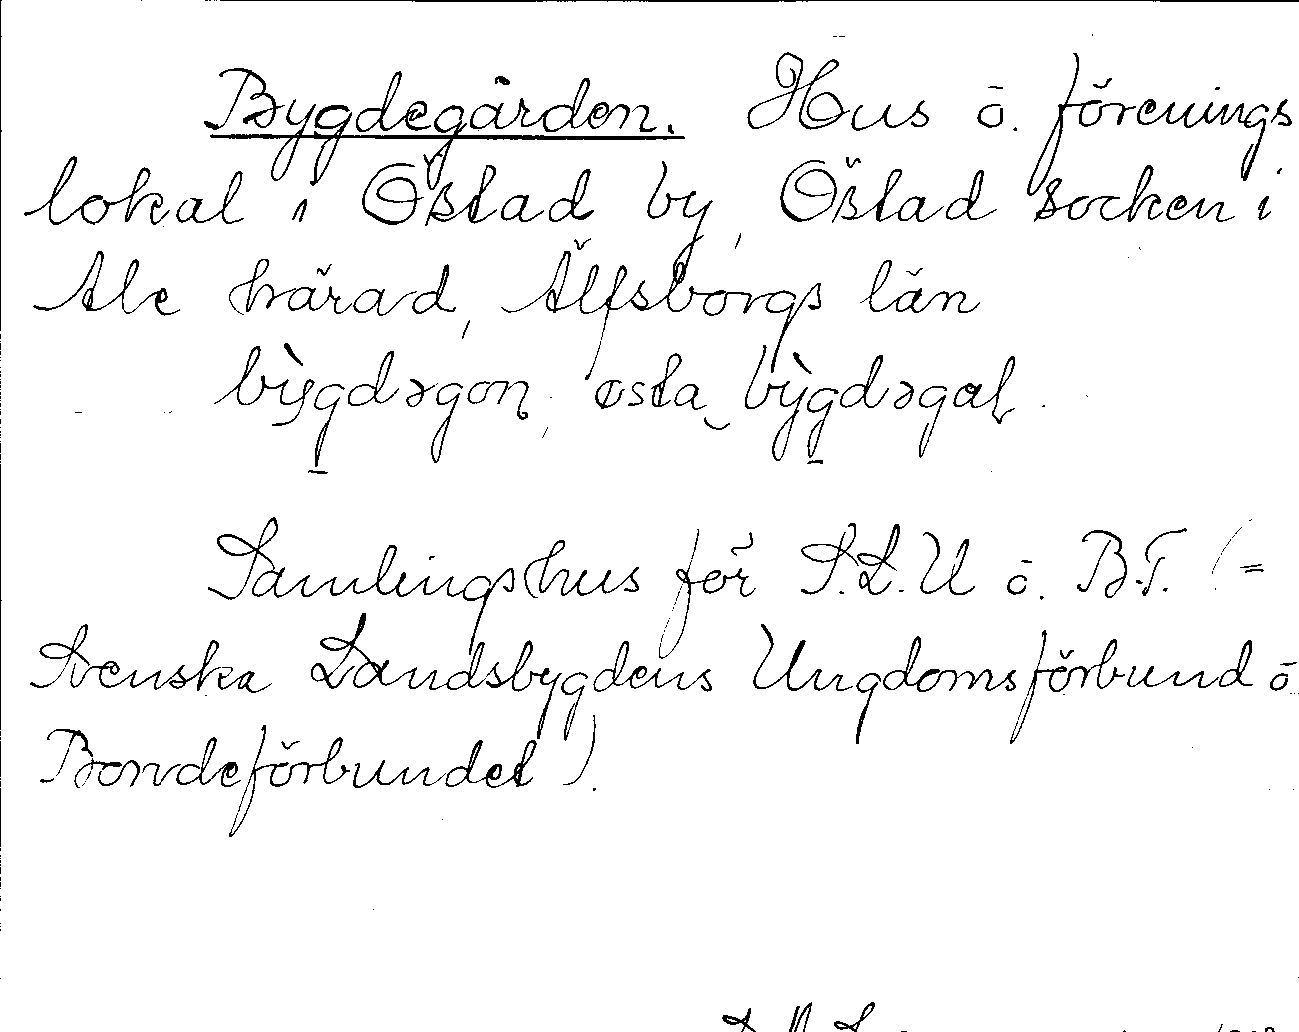 Bygdegården. Hus o. förenings
lokal i Östad by, Östad socken i
Ale härad, Älfsborgs län
bỳgdəgon, østa bỳgdəgaɫ.
Samlingshus för S.L.U o. B.F. (=
Svenska Landsbygdens Ungdomsförbund o
Bondeförbundet).